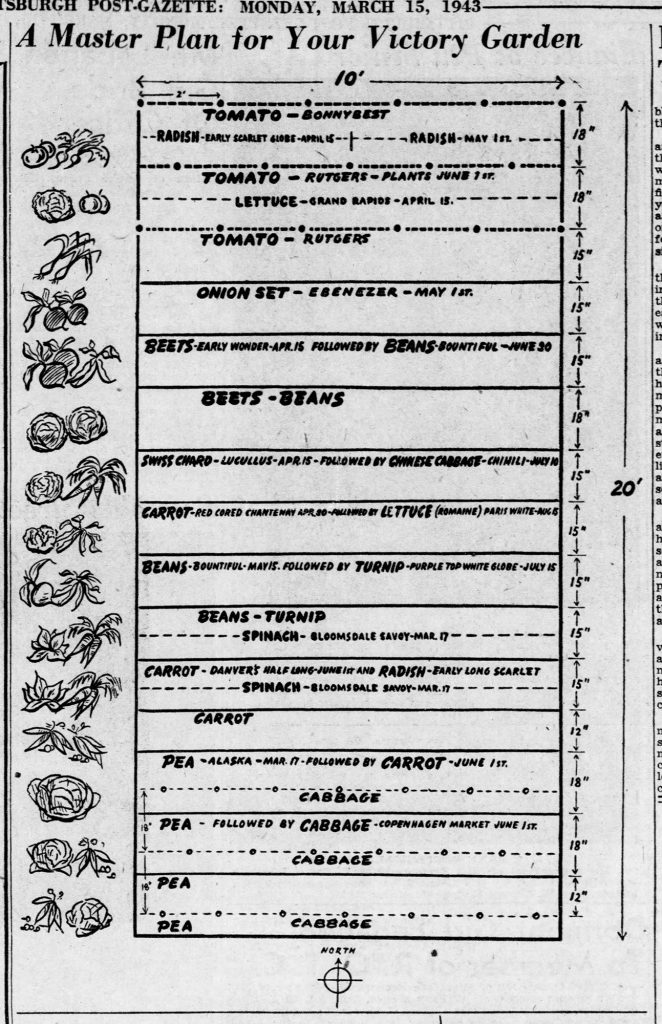 TSBURGH POST-GAZETTE: MONDAY, MARCH 15, 1943
A Master Plan for Your Victory Garden
10'
2'
TOMATO - BONNYBEST
RADISH - EARLY SCARLET GLOBE - APRIL 15 RADISH - MAY 1ST.
18"
TOMATO - RUTGERS - PLANTS JUNE 1ST.
LETTUCE - GRAND RAPIDS - APRIL 15.
18"
TOMATO - RUTGERS
15"
ONION SET - EBENEZER - MAY 1ST.
15"
BEETS - EARLY WONDER - APR. 15 FOLLOWED BY BEANS - BOUNTIFUL - JUNE 30
15"
BEETS - BEANS
18"
SWISS CHARD - LUCULLUS - APR. 15 - FOLLOWED BY CHINESE CABBAGE - CHIHILI - JULY 10
15"
20'
CARROT - RED CORED CHANTENAY APR. 20 - FOLLOWED BY LETTUCE (ROMAINE) PARIS WHITE - AUG 15
15"
BEANS - BOUNTIFUL - MAY 15. FOLLOWED BY TURNIP - PURPLE TOP WHITE GLOBE - JULY 15
15"
BEANS - TURNIP
SPINACH - BLOOMSDALE SAVOY - MAR. 17
15"
CARROT - DANVER'S HALF LONG - JUNE 1ST AND RADISH - EARLY LONG SCARLET
SPINACH - BLOOMSDALE SAVOY - MAR. 17
15"
CARROT
12"
PEA - ALASKA - MAR. 17 - FOLLOWED BY CARROT - JUNE 1ST.
CABBAGE
18"
18"
PEA - FOLLOWED BY CABBAGE - COPENHAGEN MARKET JUNE 1ST.
CABBAGE
18"
18"
PEA
12"
CABBAGE
PEA
NORTH